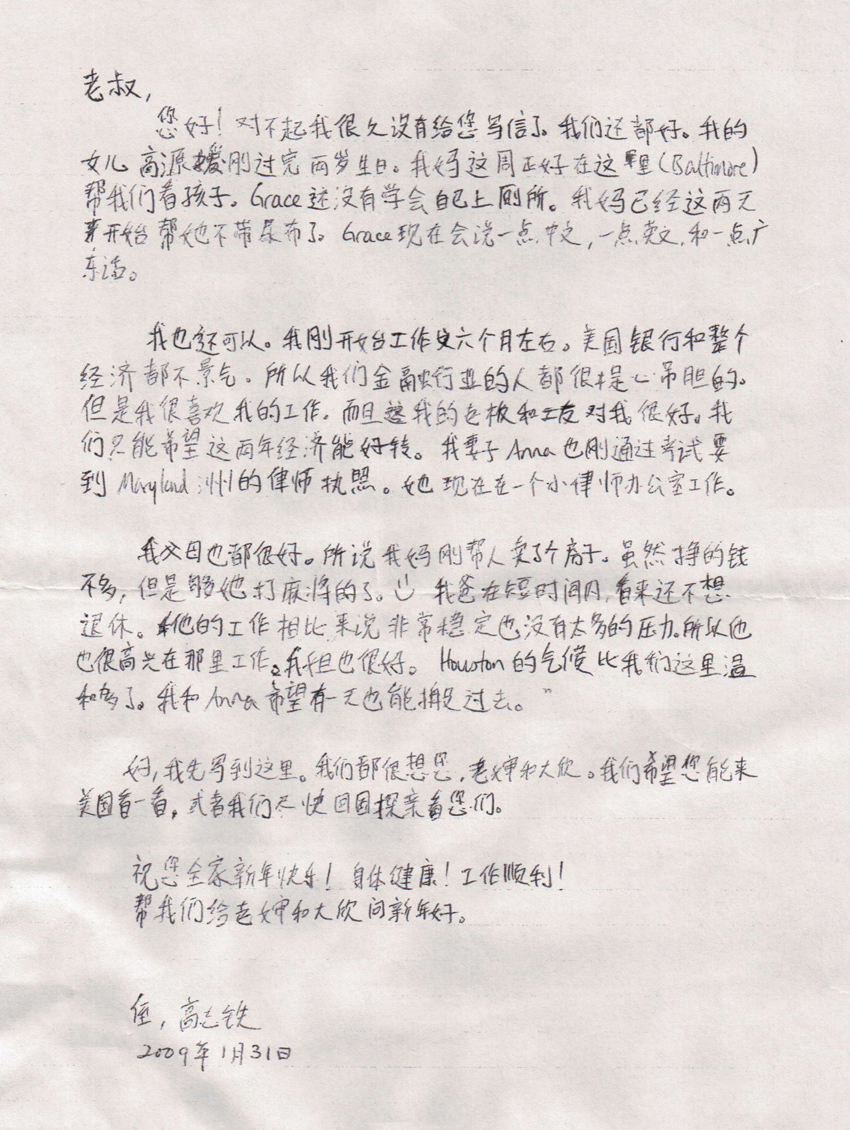 老叔，
您好！对不起我很久没有给您写信了。我们还都好。我的
女儿高源媛刚过完两岁生日。我妈这周正好在这里(Baltimore)
帮我们看孩子。Grace还没有学会自己上厕所。我妈已经这两天
开始帮她不带尿布了。Grace现在会说一点中文，一点英文，和一点广
东话。
我也还可以。我刚开始工作六个月左右。美国银行和整个
经济都不景气。所以我们金融行业的人都很提心吊胆的。
但是我很喜欢我的工作。而且我的老板和工友对我很好。我
们只能希望这两年经济能好转。我妻子Anna也刚通过考试要
到Maryland州的律师执照。她现在在一个小律师办公室工作。
我父母也都很好。所说我妈刚帮人卖了个房子。虽然挣的钱
不多，但是够她打麻将的了。我爸在短时间内，看来还不想
退休。他的工作相比来说非常稳定也没有太多的压力。所以他
也很高兴在那里工作。我姐也很好。Houston的气候比我们这里温
和多了。我和Anna希望有一天也能搬过去。
好，我先写到这里。我们都很想您，老婶和大欣。我们希望您能来
美国看一看，或者我们尽快回国探亲看您们。
祝您全家新年快乐！身体健康！工作顺利！
帮我们给老婶和大欣问新年好。
侄，高志铁
2009年1月31日